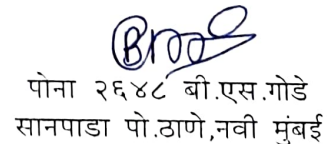 पोना २६४८ बी.एस.गोडे
सानपाडा पो.ठाणे,नवी मुंबई